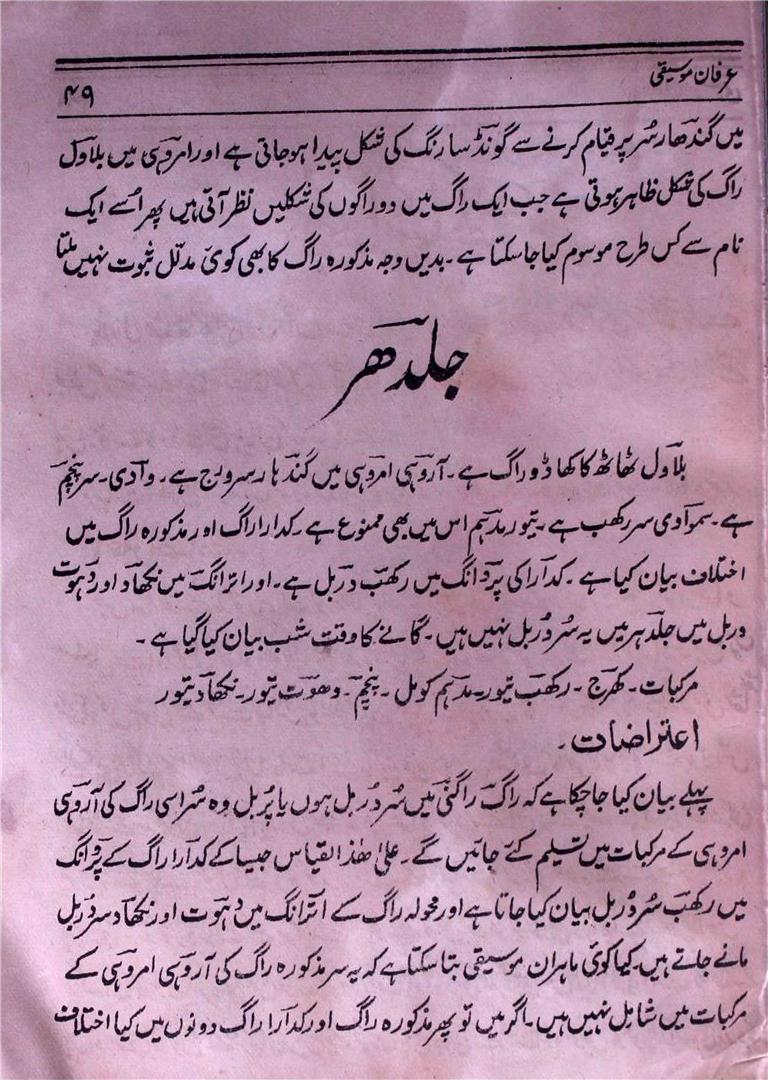 عرفان موسیقی
۴۹
میں گندھار سُر پر قیام کرنے سے گونڈ سارنگ کی شکل پیدا ہوجاتی ہے اور امروہی میں بلاول
راگ کی شکل ظاہر ہوتی ہے جب ایک راگ میں دو راگوں کی شکلیں نظر آتی ہیں پھر اُسے ایک
نام سے کس طرح موسوم کیا جا سکتا ہے۔ بدیں وجہ مذکورہ راگ کا بھی کوئی مدلّل ثبوت نہیں ملتا
جلدھر
بلاول ٹھاٹھ کا کھاڈو راگ ہے۔ آروہی امروہی میں گندہار سر ورج ہے۔ وادی۔ سر پنچم
ہے۔ سموادی سر رکھب ہے۔ تیور مدہم اس میں بھی ممنوع ہے۔ کدارا راگ اور مذکورہ راگ میں
اختلاف بیان کیا ہے۔ کدارا کی پردانگ میں رکھب دربل ہے۔ اور اترانگ میں نکھاد اور دہوت
دربل میں جلدہر میں یہ سُر دُربل نہیں ہیں۔ گانے کا وقت شب بیان کیا گیا ہے۔
مرکبات۔ کھرج۔ رکھب تیور۔ مدہم کومل۔ پنچم۔ دھوت تیور۔ نکھاد تیور
اعتراضات۔
پہلے بیان کیا جا چکا ہے کہ راگ راگنی میں سُر دُربل ہوں یا پُربل وہ سُر اسی راگ کی آروہی
امروہی کے مرکبات میں تسلیم کئے جائیں گے۔ علیٰ ھٰذ القیاس جیسا کے کدارا راگ کے پرانگ
میں رکھب سُر دُربل بیان کیا جاتا ہے اور محولہ راگ کے اترانگ میں دہوت اور نکھاد سر دُربل
مانے جاتے ہیں۔ کیا کوئی ماہران موسیقی بتا سکتا ہے کہ یہ سر مذکورہ راگ کی آروہی امروہی کے
مرکبات میں شامل نہیں ہیں۔ اگر ہیں تو پھر مذکورہ راگ اور کدارا راگ دونوں میں کیا اختلاف